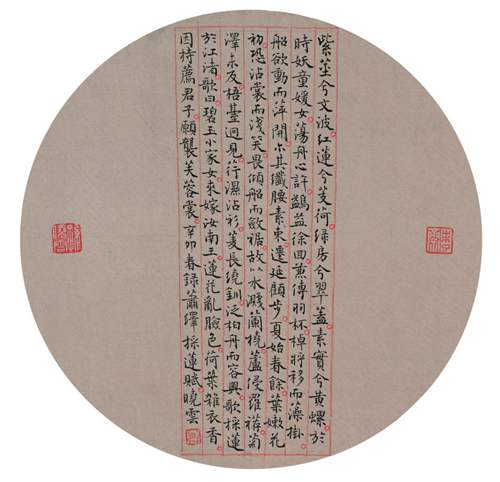 紫莖兮文波紅蓮兮芰荷綠房兮翠蓋素實兮黃螺於
時妖童媛女蕩舟心許鷁益徐回兼傳羽杯棹將移而藻掛
船欲動而萍開尔其纖腰素束遷延顧步夏始春餘葉嫩花
初恐沾裳而淺笑畏傾船而斂裾故以水濺蘭橈蘆侵羅䙱菊
澤未及梧臺迥見荇濕沾衫菱長繞釧泛柏舟而容與歌採蓮
於江渚歌曰碧玉小家女來嫁汝南王蓮花亂臉色荷葉雜衣香
因持薦君子願襲芙蓉裳辛卯春錄蕭繹採蓮賦曉雲